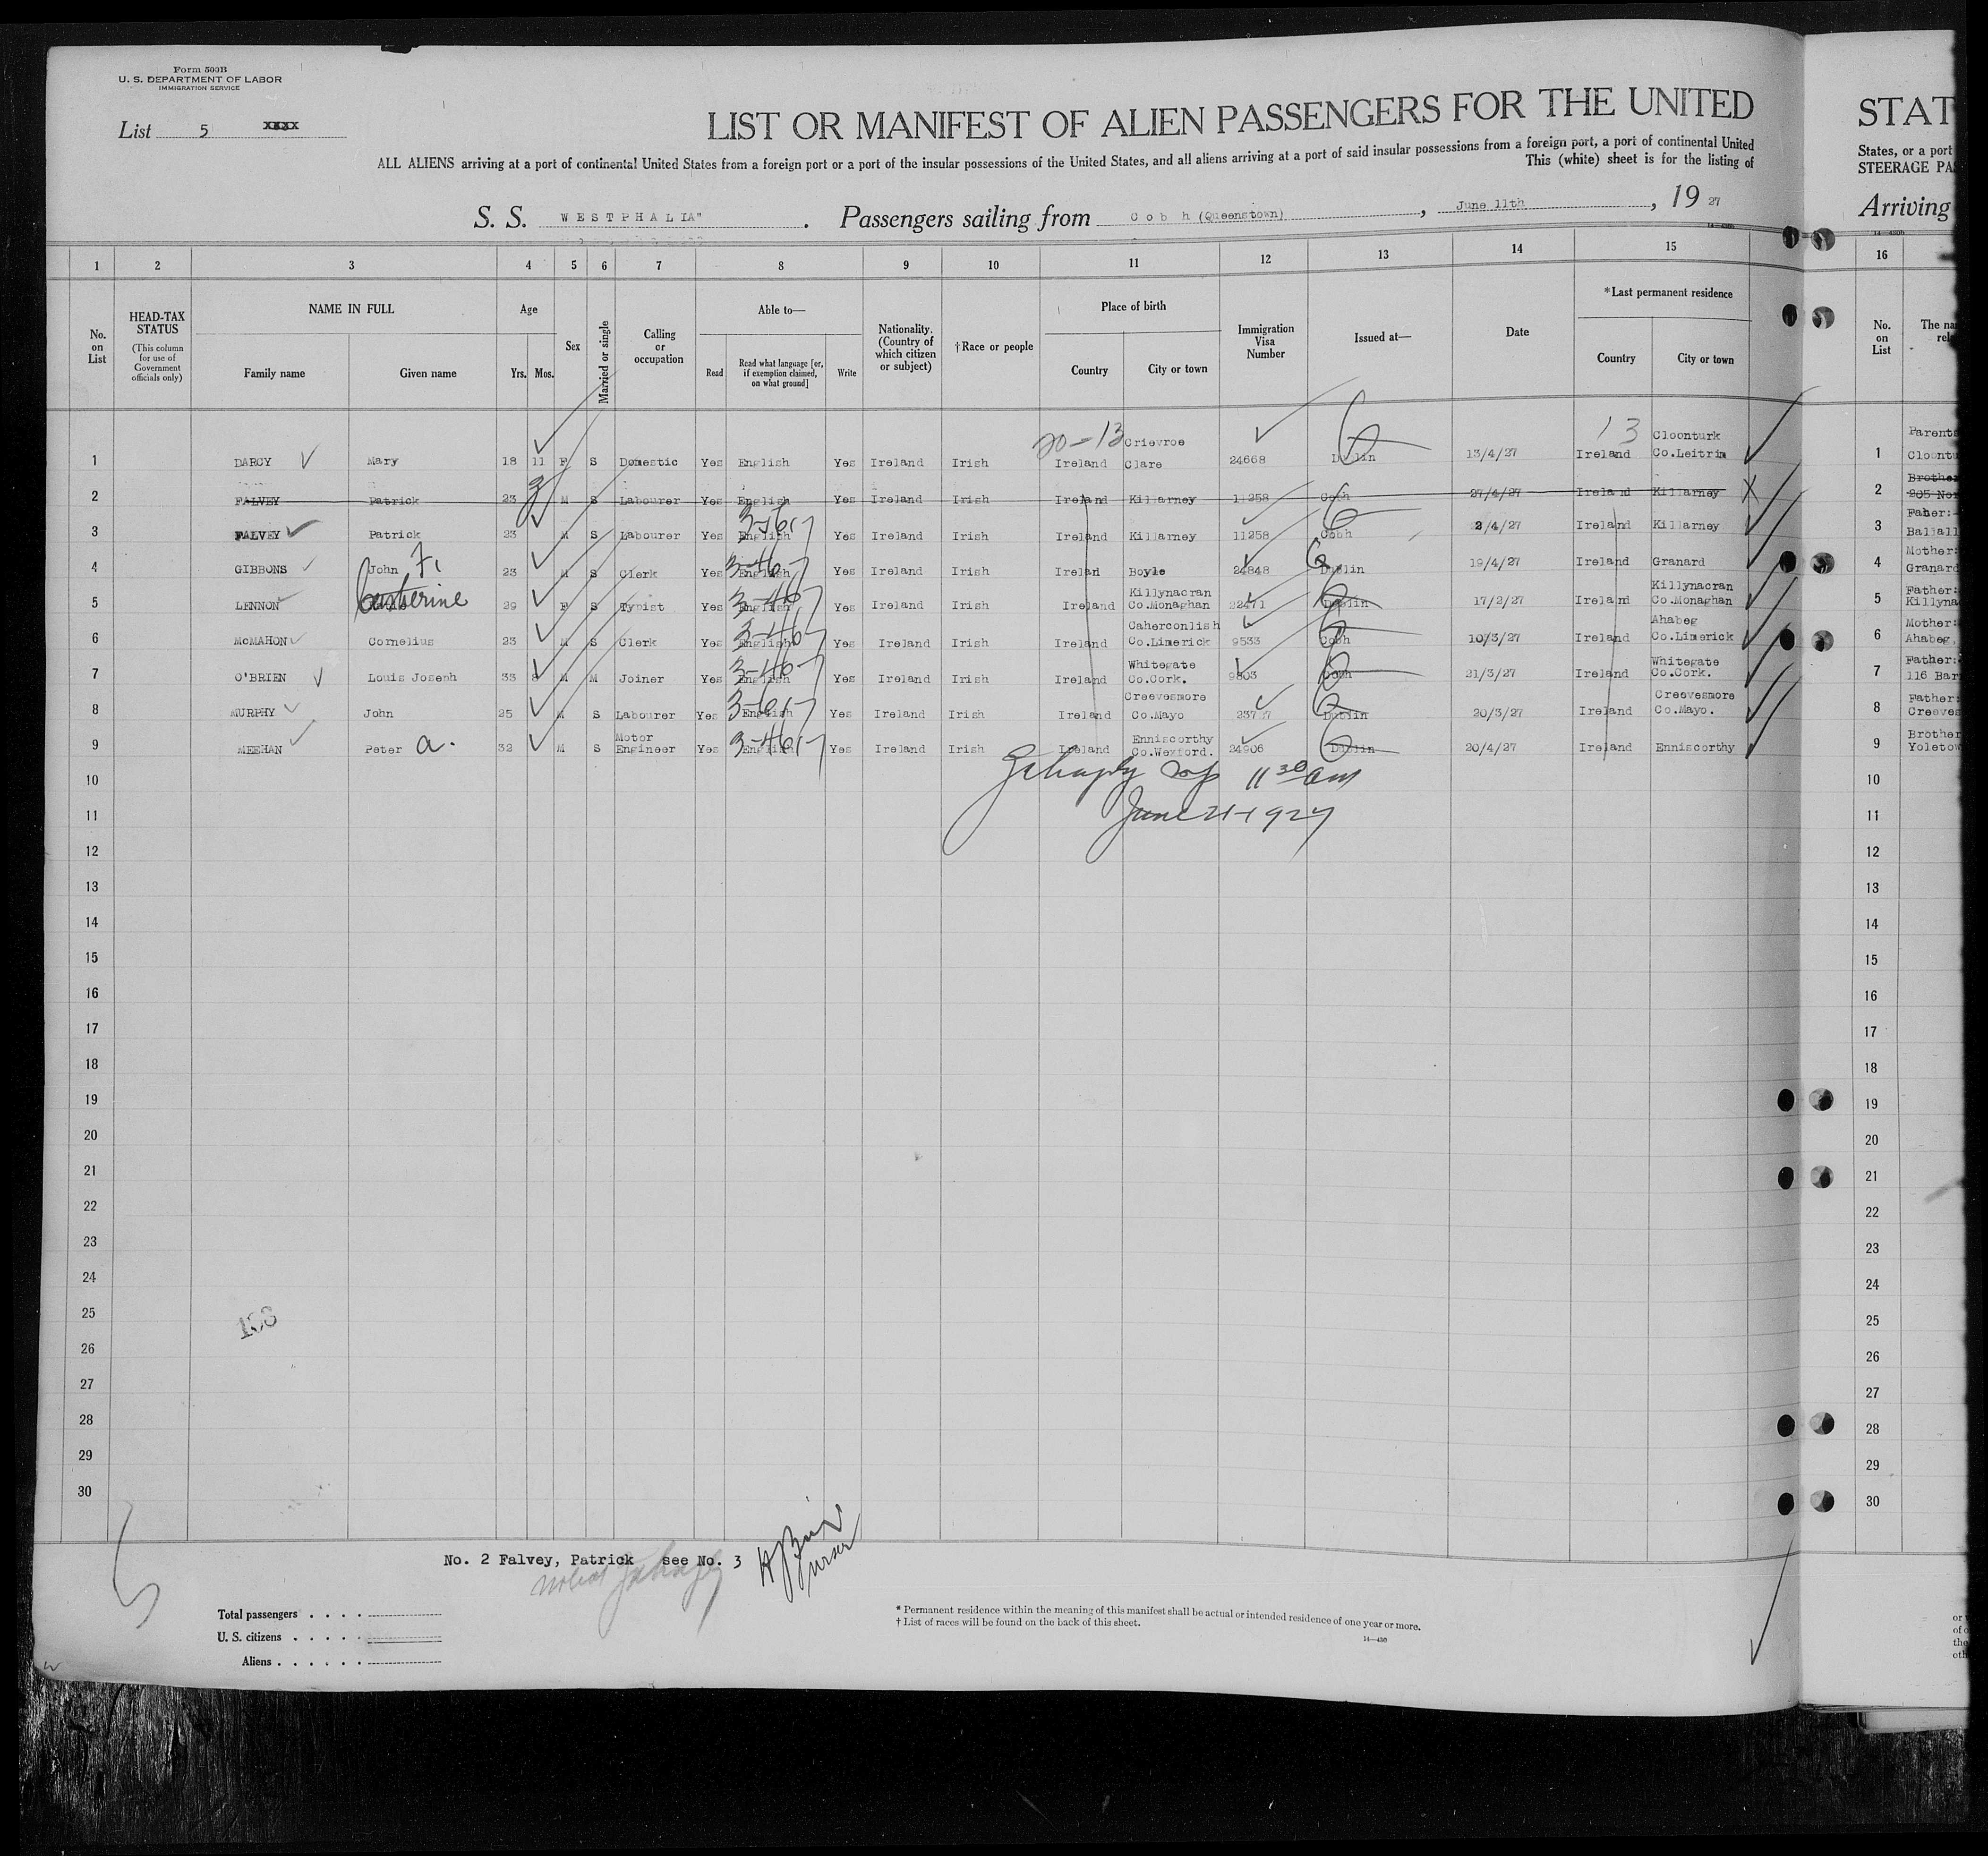 Form 500B
U. S. DEPARTMENT OF LABOR
IMMIGRATION SERVICE
List 5 xxxx
LIST OR MANIFEST OF ALIEN PASSENGERS FOR THE UNITED
ALL ALIENS arriving at a port of continental United States from a foreign port or a port of the insular possessions of the United States, and all aliens arriving at a port of said insular possessions from a foreign port, a port of continental United
This (white) sheet is for the listing of
S. S. WESTPHALIA" . Passengers sailing from Cobh (Queenstown) , June 11th , 19 27
1 2 3 4 5 6 7 8 9 10 11 12 13 14 15
No. on List
HEAD-TAX STATUS
(This column for use of Government officials only)
NAME IN FULL
Family name Given name
Age
Yrs. Mos.
Sex
Married or single
Calling or occupation
Able to—
Read
Read what language [or, if exemption claimed, on what ground]
Write
Nationality. (Country of which citizen or subject)
†Race or people
Place of birth
Country City or town
Immigration Visa Number
Issued at—
Date
*Last permanent residence
Country City or town
20-13 Crievroe 13 Cloonturk
1 DARCY Mary 18 11 F S Domestic Yes English Yes Ireland Irish Ireland Clare 24668 Dublin 13/4/27 Ireland Co.Leitrim
2 FALVEY Patrick 23 M S Labourer Yes English Yes Ireland Irish Ireland Killarney 11258 Cobh 27/4/27 Ireland Killarney X
3 FALVEY Patrick 23 M S Labourer Yes English Yes Ireland Irish Ireland Killarney 11258 Cobh 2/4/27 Ireland Killarney
4 GIBBONS John F. 23 M S Clerk Yes English Yes Ireland Irish Irelan Boyle 24848 Dublin 19/4/27 Ireland Granard
Killynacran Killynacran
5 LENNON Catherine 29 F S Typist Yes English Yes Ireland Irish Ireland Co.Monaghan 22471 Dublin 17/2/27 Ireland Co.Monaghan
Caherconlish Ahabeg
6 McMAHON Cornelius 23 M S Clerk Yes English Yes Ireland Irish Ireland Co.Limerick 9533 Cobh 10/3/27 Ireland Co.Limerick
Whitegate Whitegate
7 O'BRIEN Louis Joseph 33 M M Joiner Yes English Yes Ireland Irish Ireland Co.Cork. 9803 Cobh 21/3/27 Ireland Co.Cork.
Creevesmore Creevesmore
8 MURPHY John 25 M S Labourer Yes English Yes Ireland Irish Ireland Co.Mayo 23727 Dublin 20/3/27 Ireland Co.Mayo.
Motor Enniscorthy
9 MEEHAN Peter a. 32 M S Engineer Yes English Yes Ireland Irish Ireland Co.Wexford. 24906 Dublin 20/4/27 Ireland Enniscorthy
10 11 30 am
11 June 21-1927
12
13
14
15
16
17
18
19
20
21
22
23
24
25
26
27
28
29
30
No. 2 Falvey, Patrick see No. 3
Total passengers
U. S. citizens
Aliens
* Permanent residence within the meaning of this manifest shall be actual or intended residence of one year or more.
† List of races will be found on the back of this sheet.
14—430
STAT
States, or a port
STEERAGE PA
Arriving
16
No. on List
The na
rel
Parents
1 Cloontu
Brother
2 205 Nor
3 Father:
Ballall
Mother:
4 Granard
Father:
5 Killyna
Mother:
6 Ahabeg,
Father:
7 116 Bar
Father:
8 Creeves
Brother
9 Yoletow
10
11
12
13
14
15
16
17
18
19
20
21
22
23
24
25
26
27
28
29
30